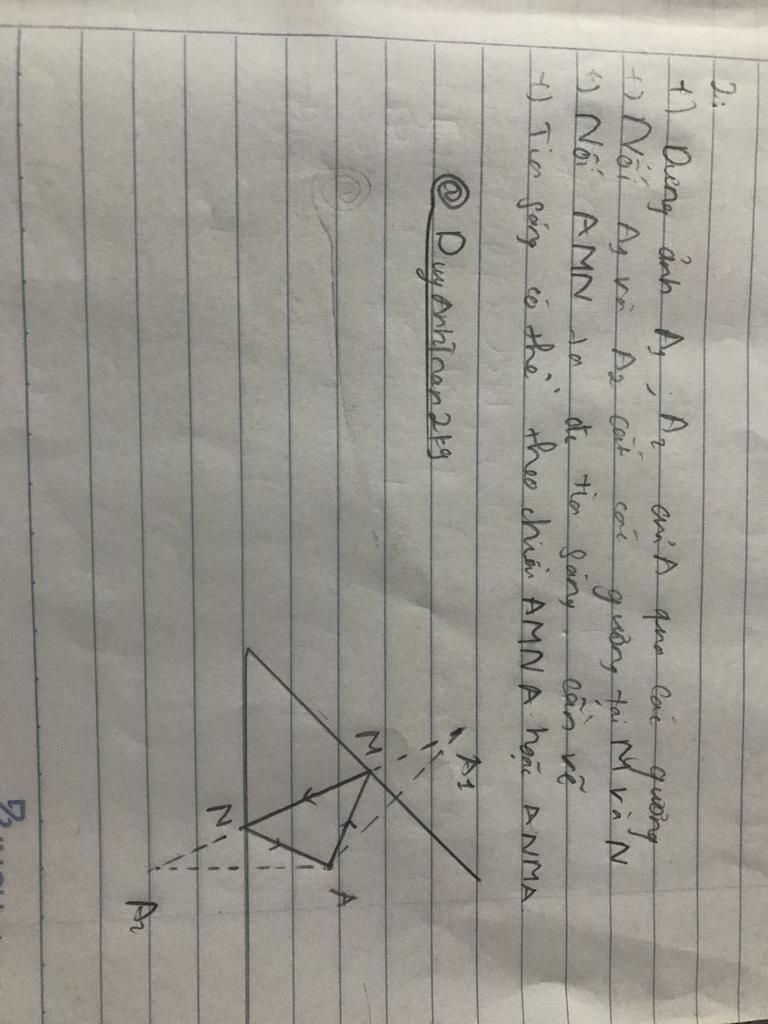 2:
+) Dựng ảnh A1, A2 của A qua các gương
+) Nối A1 và A2 cắt các gương tại M và N
+) Nối AMN ta đc tia sáng cần vẽ
+) Tia sáng có thể theo chiều AMNA hoặc ANMA
@DuyAnhTran2k9
A1
M
A
N
A2